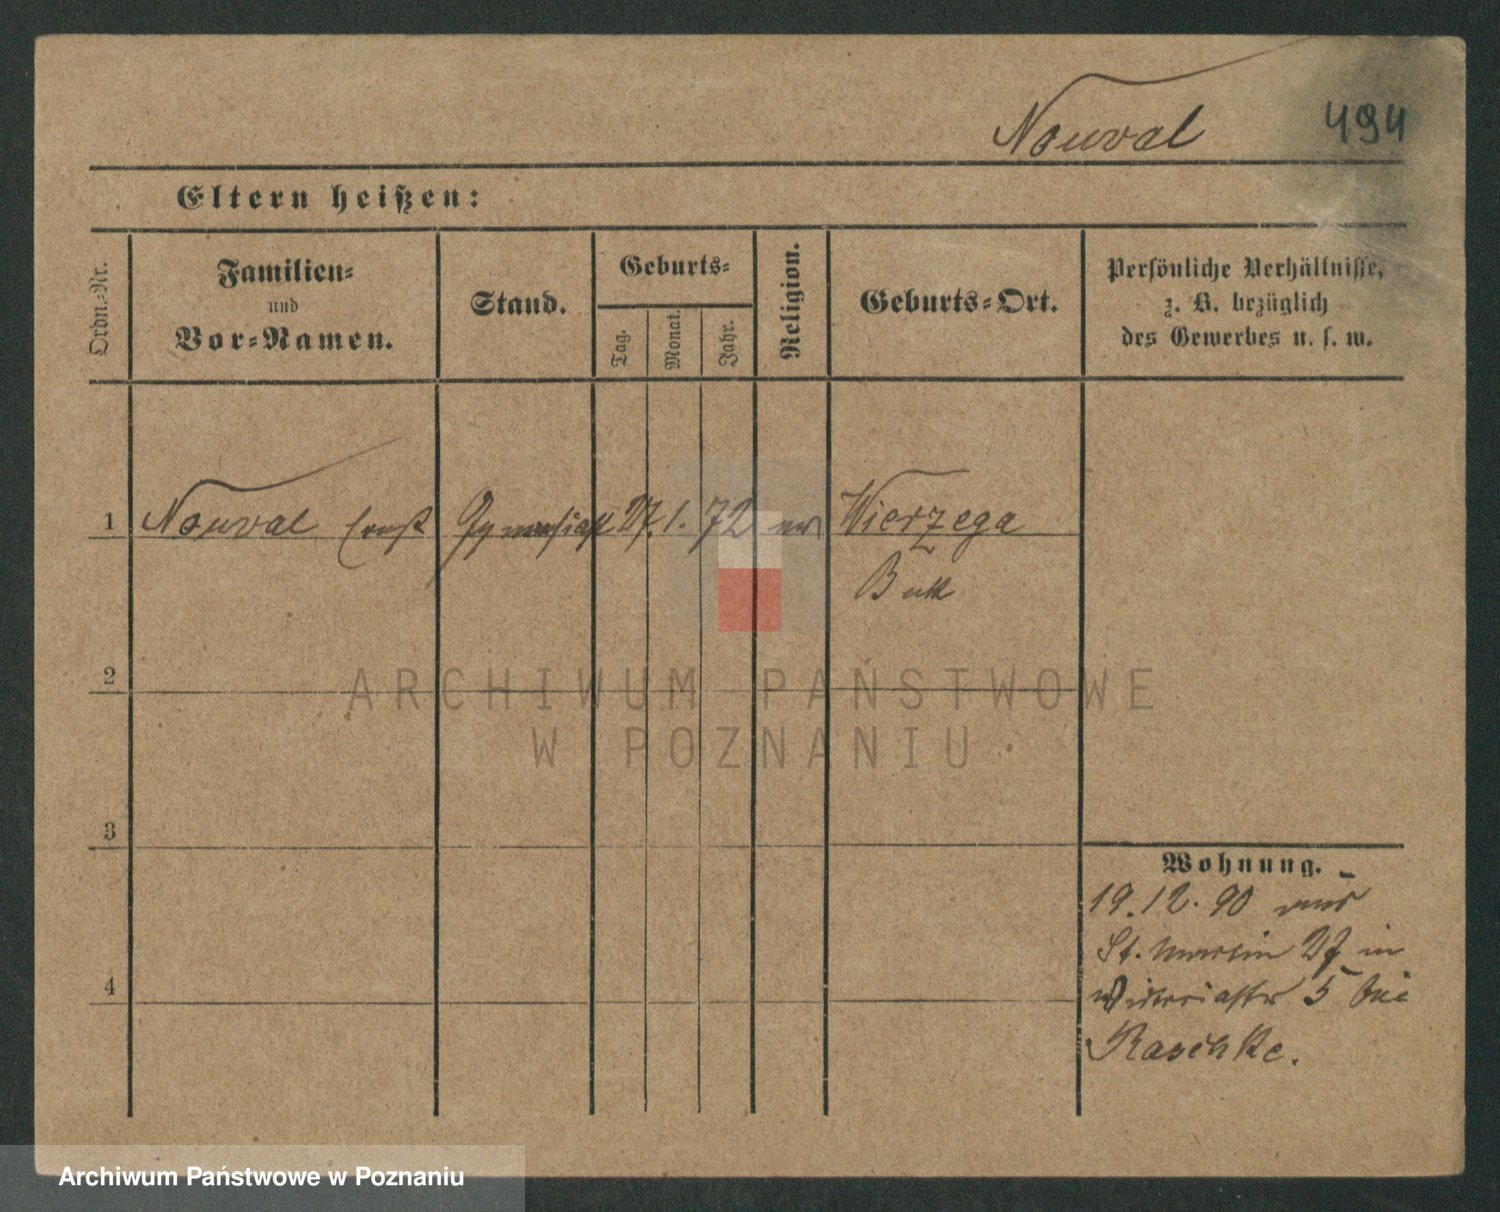 Nouval 494
Eltern heißen:
Ordn.-Nr.
Familien-
und
Vor-Namen.
Stand.
Geburts-
Tag.
Monat.
Jahr.
Religion.
Geburts-Ort.
Persönliche Verhältnisse,
z. B. bezüglich
des Gewerbes u. s. w.
1 Nouval Ernst Gymnasiast 27. 1. 72 Wierzega
Buk
2
3
4
Wohnung.
19.12.90 aus
St. Martin 27 in
Victoriastr 5 bei
Raschke.
ARCHIWUM PAŃSTWOWE
W POZNANIU
Archiwum Państwowe w Poznaniu